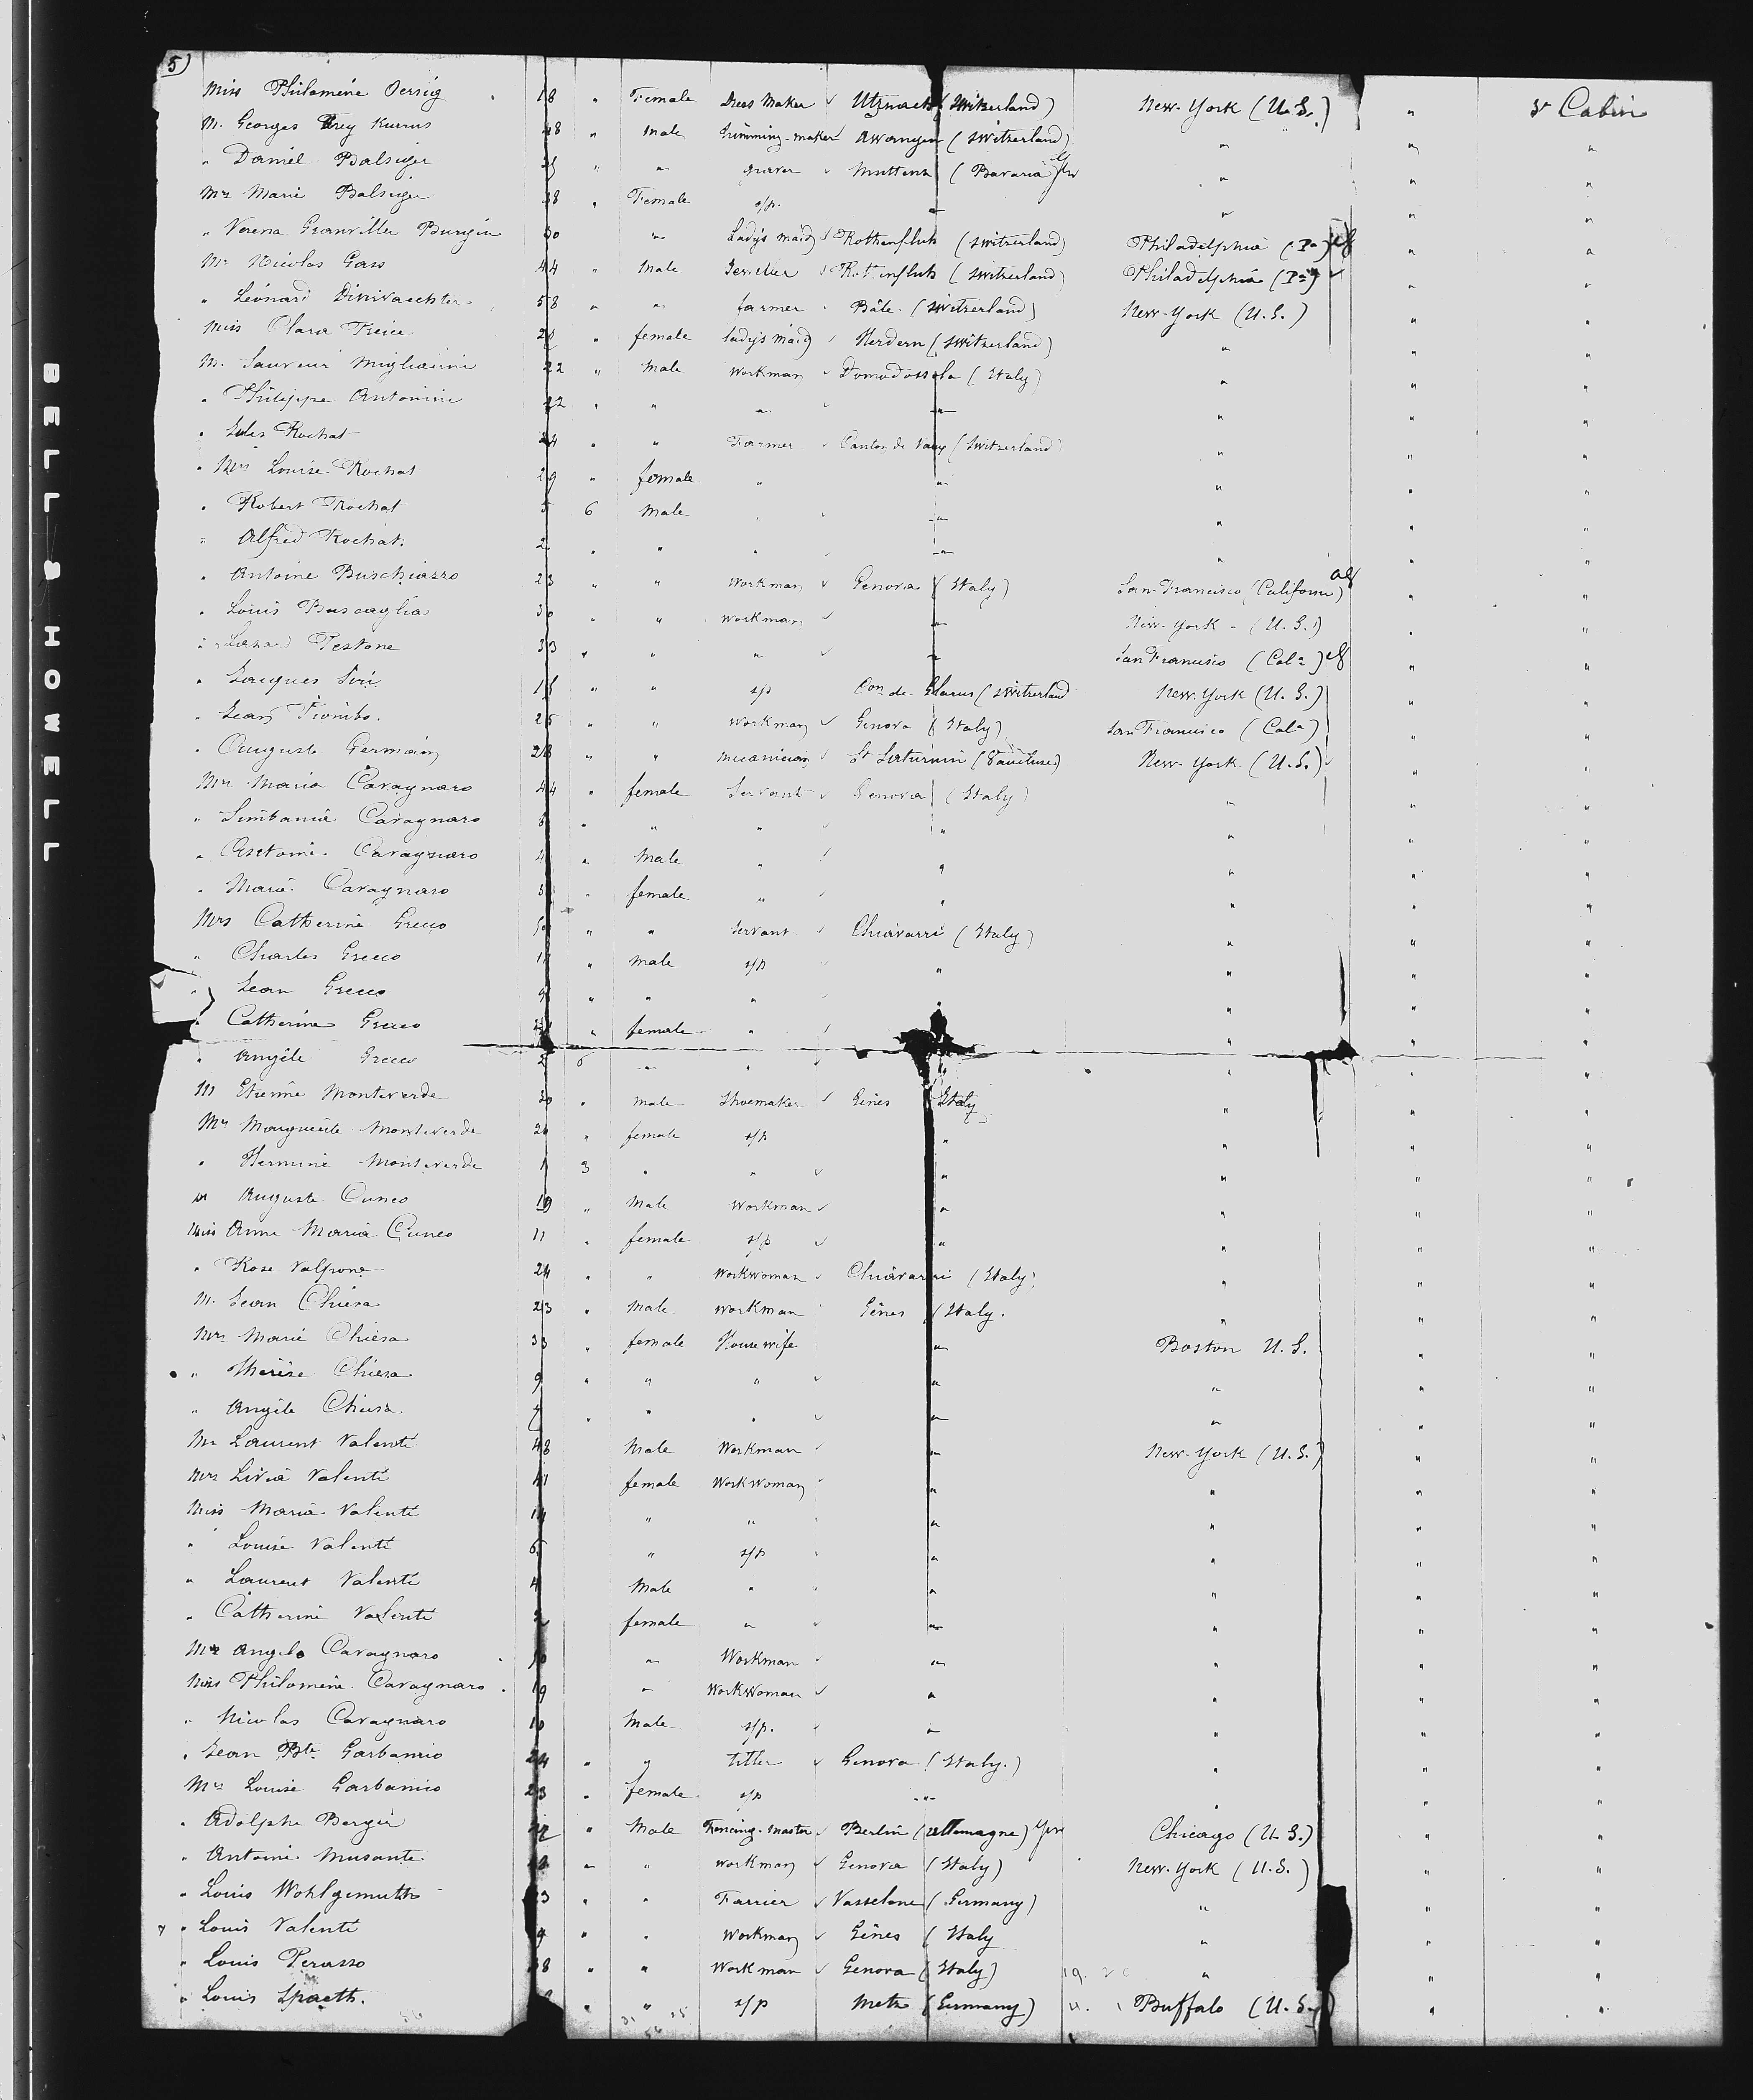 5)
Miss Philomène Oersig 18 " Female Dress Maker Utznach (Switzerland) New-York (U.S.) " 3r Cabin
M. Georges Frey Kurrus 48 " Male trimming-maker Awangen (Switzerland) " " "
" Daniel Balsiger " " graver Muttenz (Bavaria) " " "
Mrs Marie Balsiger 38 " Female s/p. " " " "
" Verena Granviller Burgin 30 " Lady's maid Rothenfluh (Switzerland) Philadelphia (Pa) " "
Mr Nicolas Gass 44 " Male Jeweller Rotenfluh (Switzerland) Philadelphia (Pa) " "
" Léonard 58 " " farmer Bâle. (Switzerland) New-York (U.S.) " "
Miss Clara " female lady's maid Herdern (Switzerland) " " "
M. Sauveur Migliarini 22 " Male Workman Domodossola (Italy) " " "
" Philippe Antonini 22 " " " " " " "
" Jules Rochat 34 " " Farmer Canton de Vaux (Switzerland) " " "
" Mrs Louise Rochat 29 " female " " " " "
" Robert Rochat 5 6 Male " " " " "
" Alfred Rochat. 2 " " " " " " "
" Antoine Buschiazzo 23 " " Workman Genova (Italy) San-Francisco (California) " "
" Louis Buscaglia 30 " " workman " New-York - (U.S.) " "
" Testone 33 " " " " San Francisco (Cala) " "
" Jacques " " s/p Con de Glarus (Switzerland New-York (U.S.) " "
" Jean Trombo. 25 " " Workman Genova (Italy) San Francisco (Cala) " "
" Auguste Germain 28 " " mecanician St Saturnin (Vaucluse) New-York (U.S.) " "
Mrs Maria Cavagnaro 44 " female Servant Genova (Italy) " " "
" Simbania Cavagnaro " " " " " " "
" Antoine Cavagnaro 4 " Male " " " " "
" Marie Cavagnaro 3 " female " " " " "
Mrs Catherine Grecco " " Servant Chiavarri (Italy) " " "
" Charles Grecco 11 " male s/p " " " "
" Jean Grecco 9 " " " " " " "
" Catherine Grecco " female " " " "
" Angèle Grecco 2 6 " " " " " "
M Etienne Monteverde 30 " male Shoemaker Gènes (Italy " " "
Mrs Marguerite Monteverde 24 " female s/p " " " "
" Hermine Monteverde 1 3 " " " " " "
M Auguste Cuneo 19 " Male Workman " " " "
Miss Anne-Maria Cuneo 11 " female s/p " " " "
" Rose Valpone 24 " " Workwoman Chiavarri (Italy) " " "
M. Jean Chiesa 23 " Male workman Gènes (Italy. " " "
Mrs Marie Chiesa 33 " female Housewife " Boston U.S. " "
" Thérèse Chiesa 9 " " " " " " "
" Angèle Chiesa 7 " " " " " " "
Mr Laurent Valenti 48 Male Workman " New-York (U.S.) " "
Mrs Livia Valenti 41 female Workwoman " " " "
Miss Maria Valenti 14 " " " " " "
" Louise Valenti 6 " s/p " " " "
" Laurent Valenti 4 Male " " " " "
" Catherine Valenti 2 female " " " " "
Mr Angelo Cavagnaro " Workman " " " "
Miss Philomène Cavagnaro 19 " Workwoman " " " "
" Nicolas Cavagnaro 10 Male s/p. " " " "
" Jean Bte Garbarino 24 " " Genova (Italy.) " " "
Mrs Louise Garbarino 23 " female s/p " " " "
" Adolphe Berger " Male Fencing-Master Berlin (Allemagne) Chicago (U.S.) " "
" Antoine Musante " " workman Genova (Italy) New-York (U.S.) " "
" Louis Wohlgemuth " " Farrier Vasselone (Germany) " " "
" Louis Valenti " " Workman Gênes (Italy " " "
" Louis Perasso " " Workman Genova (Italy) " " "
" Louis Spaeth. " " s/p Metz (Germany) Buffalo (U.S.) " "
BELL & HOWELL